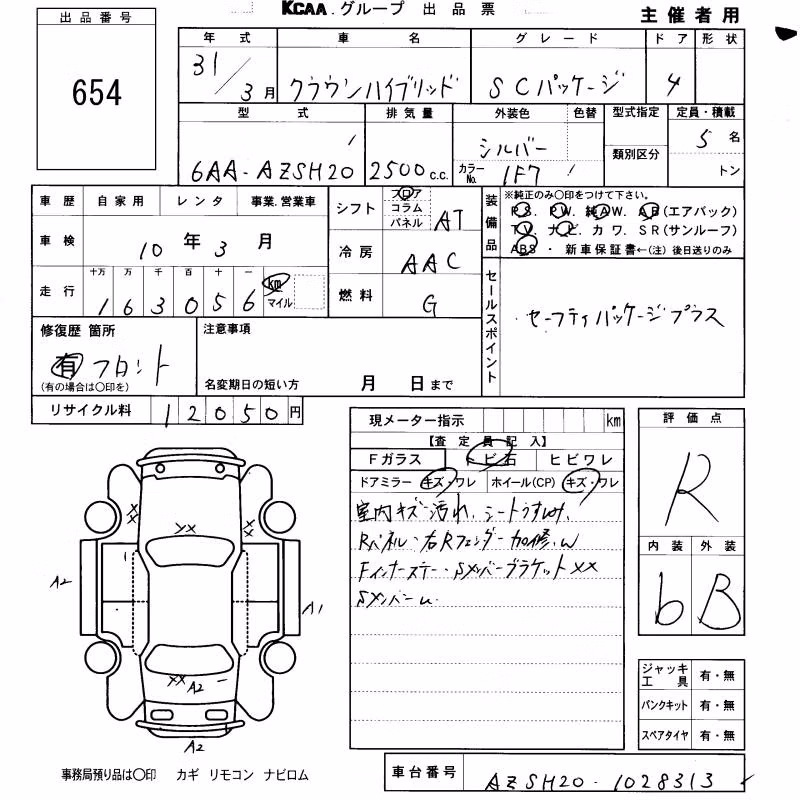 出品番号
654
KCAA.グループ 出品票
主催者用
年式 車名 グレード ドア 形状
31/3月 クラウンハイブリッド SCパッケージ 4
型式 排気量 外装色 色替 型式指定 定員・積載
6AA-AZSH20 2500c.c. シルバー カラーNo. 1F7 類別区分 5名
トン
車歴 自家用 レンタ 事業.営業車
車検 10年3月
走行 十万 万 千 百 十 一
163056 km マイル
シフト フロア コラム パネル AT
冷房 AAC
燃料 G
装備品
※純正のみ〇印をつけて下さい。
P.S. P.W. 純A.W. A.B(エアバック)
T.V. ナビ. カワ. SR(サンルーフ)
ABS ・ 新車保証書←(注) 後日送りのみ
セールスポイント
セーフティパッケージプラス
修復歴 箇所
有 フロント
(有の場合は〇印を)
注意事項
名変期日の短い方 月 日まで
リサイクル料 12050円
現メーター指示 km
【査定員記入】
Fガラス トビ石 ヒビワレ
ドアミラー キズ・ワレ ホイール(CP) キズ・ワレ
室内キズ汚れ、シートうすよごれ、
Rパネル・右Rフェンダー加修.W
Fインナーステー・Sメンバーブラケット××
Sメンバーu.
評価点
R
内装 外装
b B
ジャッキ工具 有・無
パンクキット 有・無
スペアタイヤ 有・無
XX
XX
XX
1
A2
A1
XX A2
A2
事務局預り品は〇印 カギ リモコン ナビロム
車台番号 AZSH20-1028313